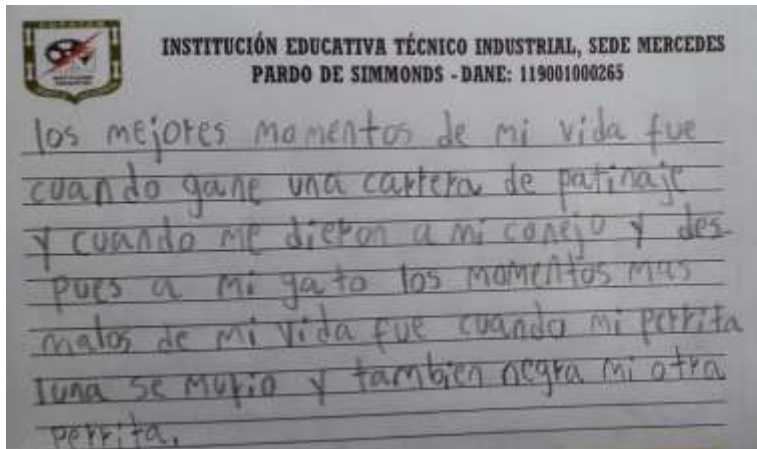 INSTITUCIÓN EDUCATIVA TÉCNICO INDUSTRIAL, SEDE MERCEDES
PARDO DE SIMMONDS - DANE: 119001000265
los mejores momentos de mi vida fue
cuando gane una carrera de patinaje
y cuando me dieron a mi conejo y des-
pues a mi gato los momentos mas
malos de mi vida fue cuando mi perrita
luna se murio y tambien negra mi otra
perrita.